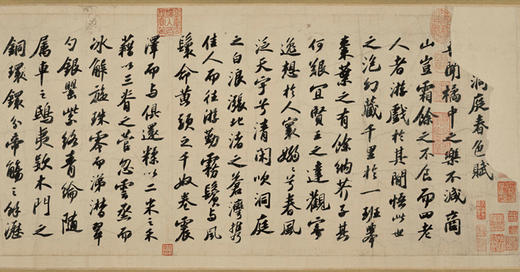 洞庭春色賦
聞橘中之樂不減商
山豈霜餘之不食而四老
人者游戲於其間悟此世
之泡幻藏千里於一班舉
棗葉之有餘納芥子其
何艱宜賢王之達觀寄
逸想於人寰嫋嫋兮春風
泛天宇兮清閑吹洞庭
之白浪漲北渚之蒼灣攜
佳人而往游勤霧鬢與風
鬟命黃頭之千奴卷震
澤而與俱還糅以二米之禾
藉以三脊之菅忽雲烝而
冰解旋珠零而涕潸翠
勺銀罌紫絡青綸隨
属車之鴟夷款木門之
銅環鐶分帝觴之餘瀝